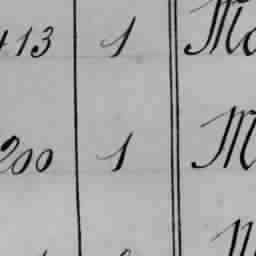 413 1 Ma
200 1 M